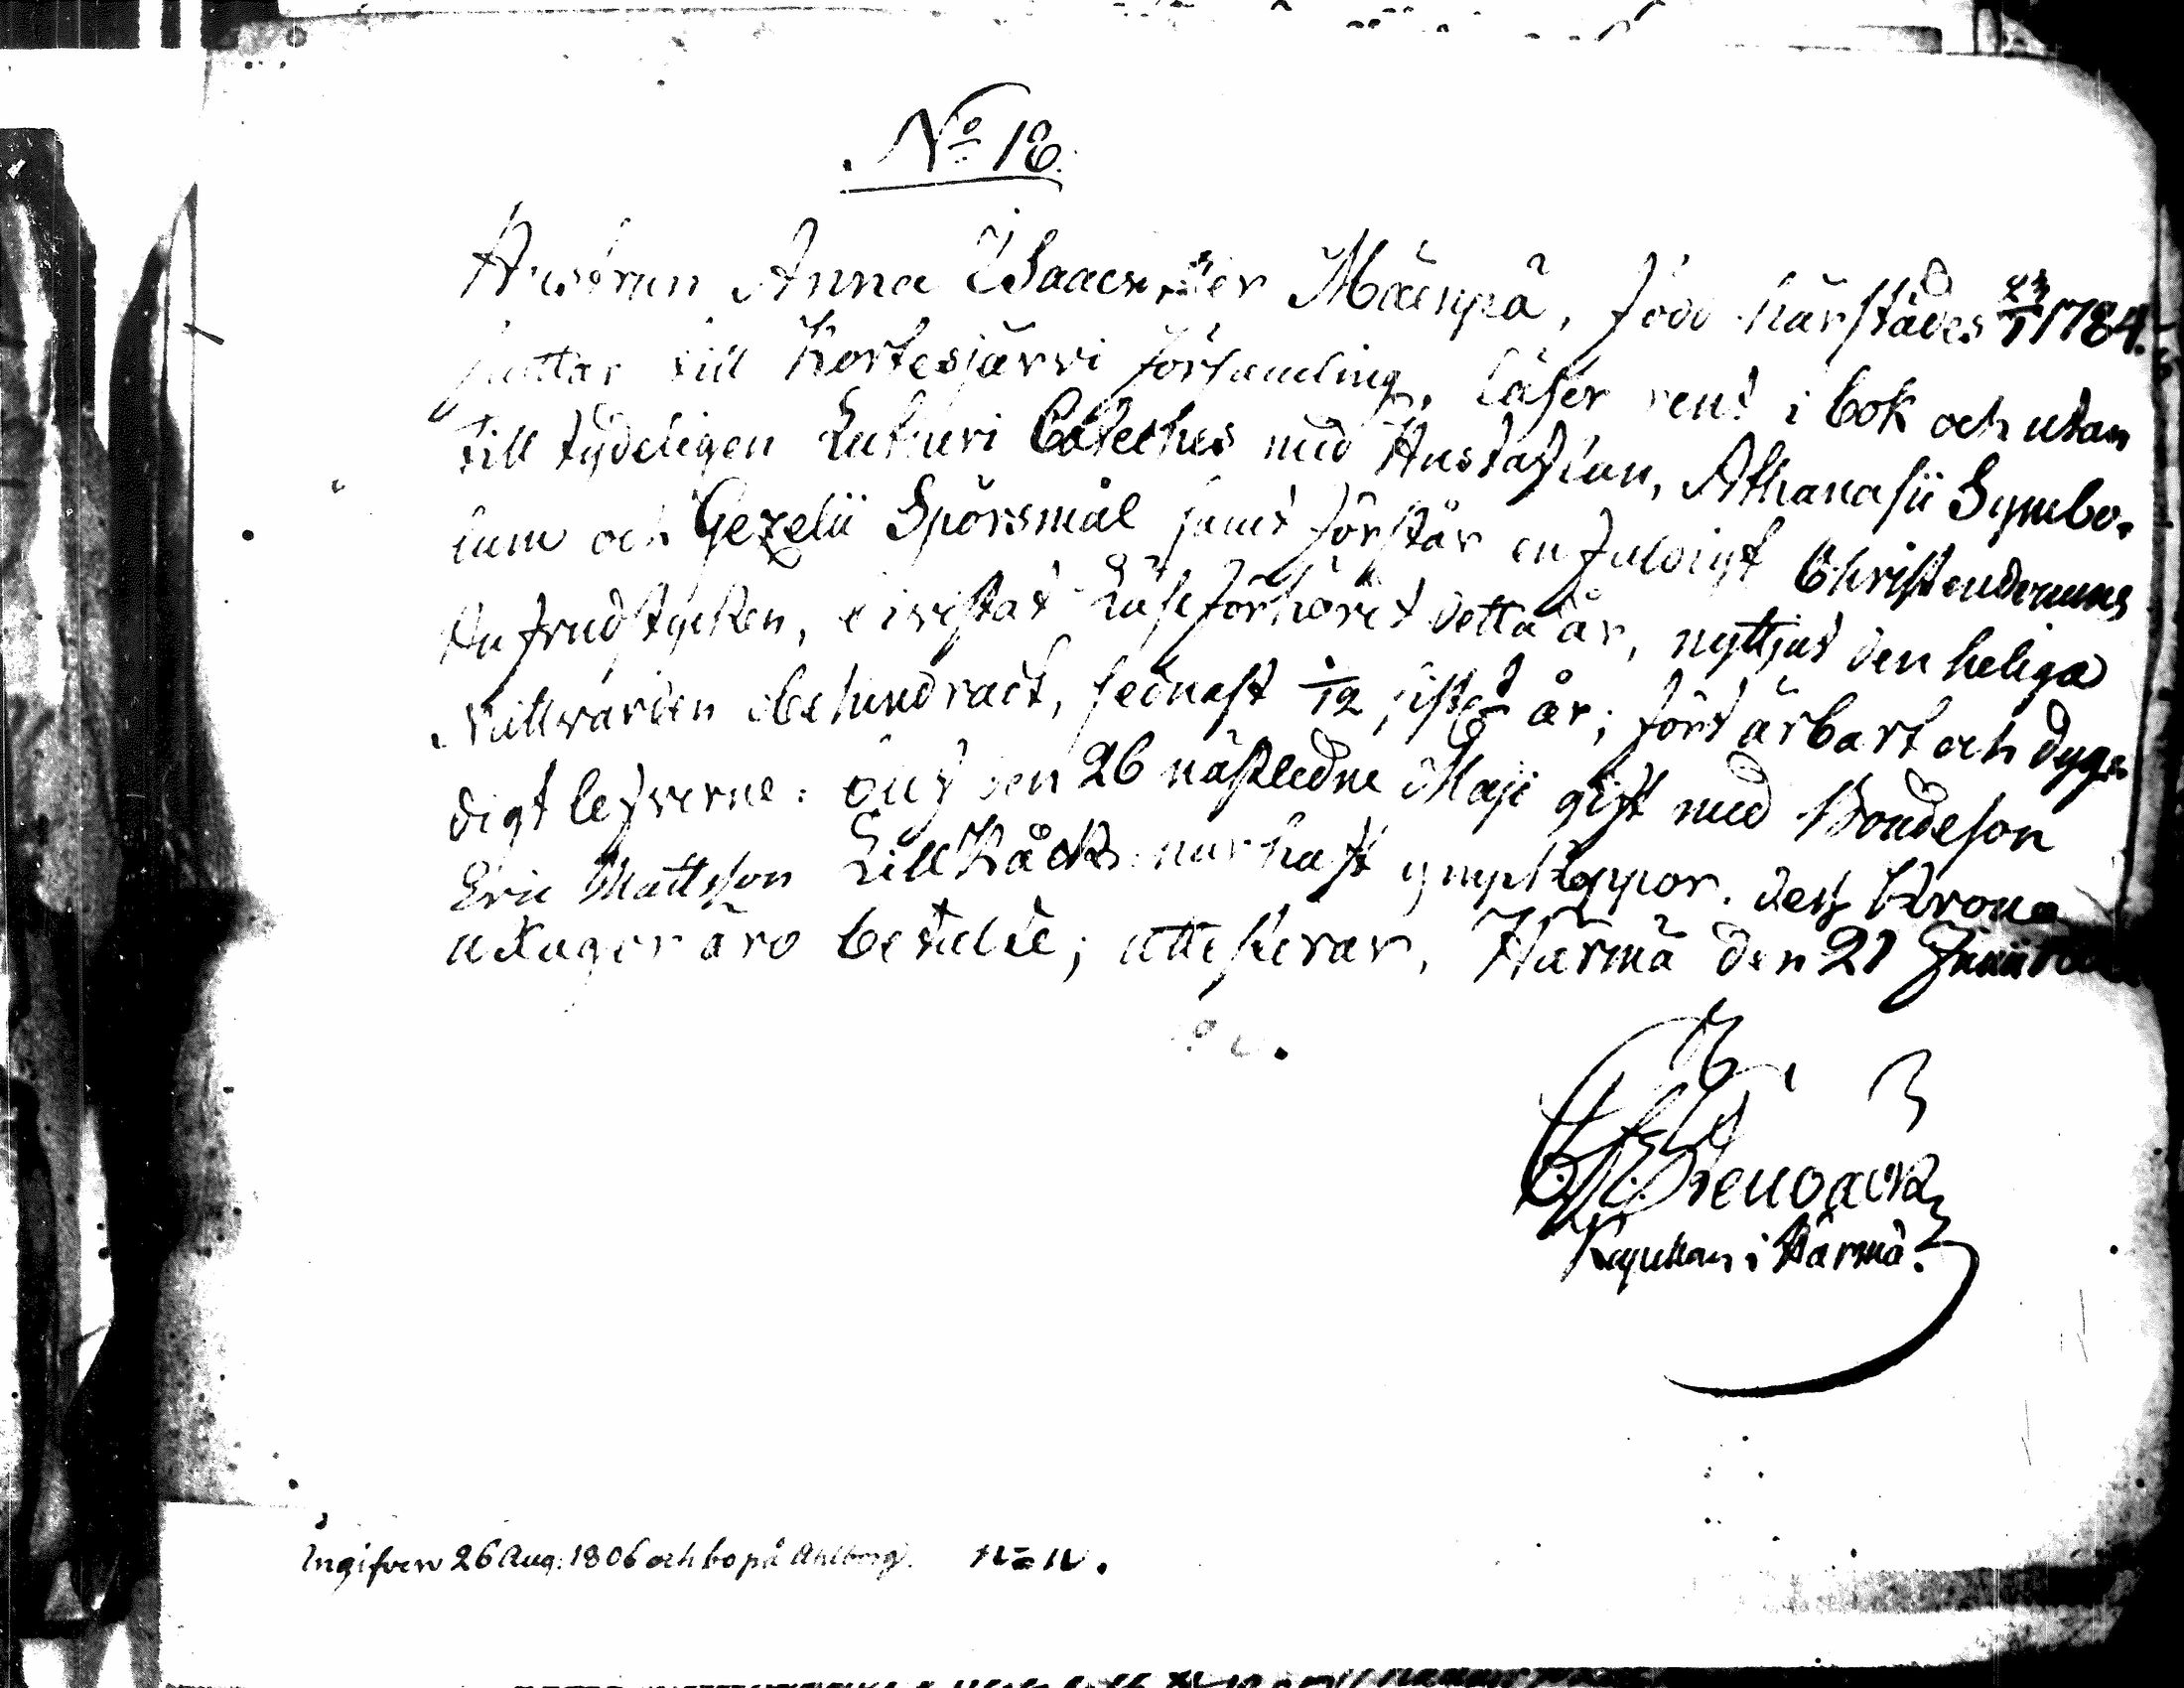 No 18.
Hustrun Anna Isaacsdter Mäenpä, född härstädes 23/1 1784.
flyttar till Kortesjärvi församling, läser rent i bok och utan
till tydeligen Lutheri Cateches med Hustaflan, Athanasii Symbo-
lum och Gezelii Spörsmål samt förstår enfaldigt Christendomens
hufvudstycken, bivistat Läseförhöret detta år, nyttjat den heliga
Nattvarden obehindradt, sednast 1/12 sistl. år; fört ärbart och dyg-
digt lefverne: blef den 26 nästledne Maji gift med Bondeson
Eric Mattsson LillKåck. har haft ympkoppor. dess Krono
utlagor äro betalde; attesterar, Härmä den 21 Junii
Capellan i Härmä.
Ingifven 26 Aug: 1806 och bo på Ahlborg. N=N.